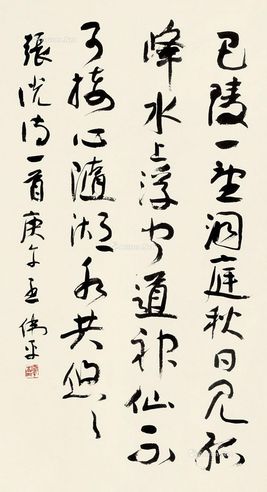 巴陵一望洞庭秋日见孤
峰水上浮闻道神仙不
可接心随湖水共悠々
张说诗一首庚午孟伟平